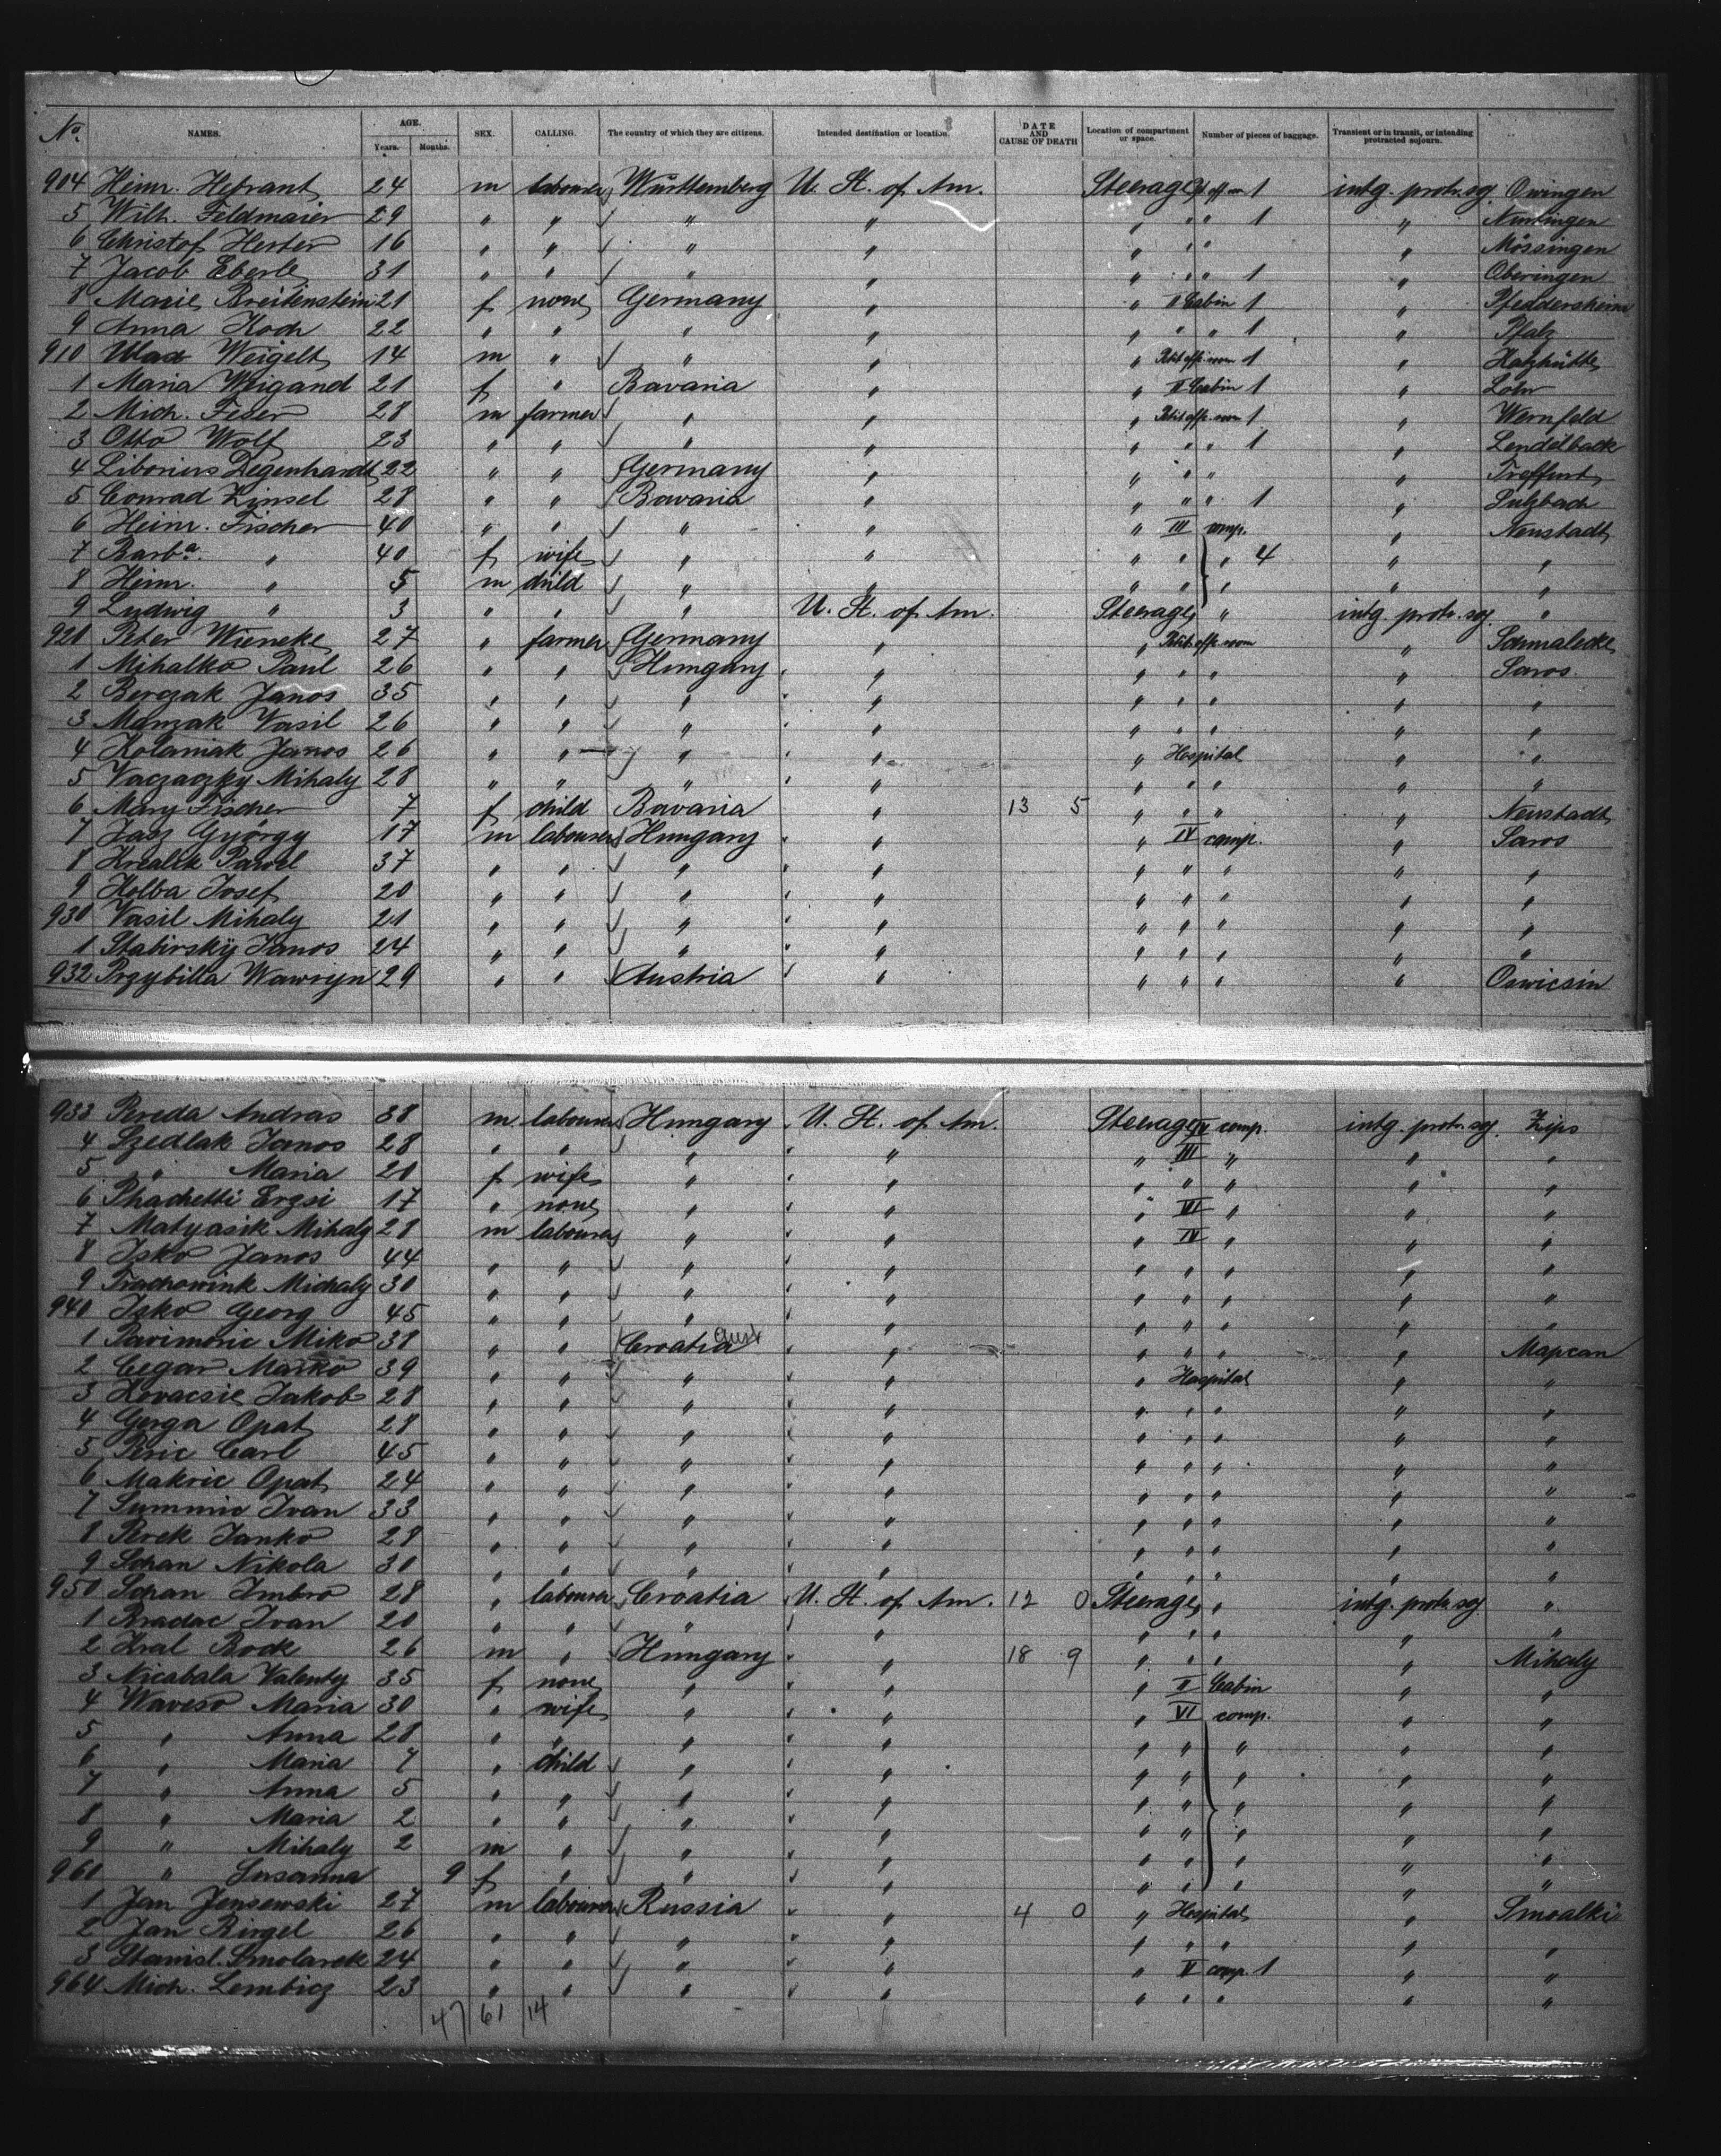 No. NAMES. AGE. Years. Months. SEX. CALLING. The country of which they are citizens. Intended destination or location. DATE AND CAUSE OF DEATH Location of compartment or space. Number of pieces of baggage. Transient or in transit, or intending protracted sojourn.
904 Heinr. Hebrant 24 m labourer Württemberg U. St. of Am. Steerage 1 intg. protr. soj. Owingen
5 Wilh. Feldmaier 29 " " " " " " " 1 " Nürtingen
6 Christof Herter 16 " " " " " " " " Mössingen
7 Jacob Eberle 31 " " " " " " " 1 " Oberingen
8 Marie Breitenstein 21 f none Germany " " II Cabin 1 " Pfeddersheim
9 Anna Koch 22 " " " " " " " 1 " Pfalz
910 Weigelt 14 m " " " " Petit offc. room 1 "
1 Maria Weigand 21 f " Bavaria " " II Cabin 1 " Lohr
2 Mich. Feser 28 m farmer " " " Petit offc. room 1 " Wernfeld
3 Otto Wolf 23 " " " " " " " 1 " Lendelback
4 Liborius Degenhardt 22 " " Germany " " " " " Treffurt
5 Conrad Zinsel 28 " " Bavaria " " " " 1 " Sulzbach
6 Heinr. Fischer 40 " " " " " III comp. " Neustadt
7 Barba. " 40 f wife " " " " " 4 " "
8 Heinr. " 5 m child " " " " " " "
9 Ludwig " 3 " " " U. St. of Am. Steerage " intg. protr. soj. "
920 Peter Wieneke 27 " farmer Germany " " Petit offc. room " Schmalecke
1 Mihalko Paul 26 " " Hungary " " " " " Saros
2 Berczak Janos 35 " " " " " " " " "
3 Manzak Vasil 26 " " " " " " " " "
4 Kolaniak Janos 26 " " " " " Hospital " "
5 Vaczaczky Mihaly 28 " " " " " " " " "
6 Mary Fischer 7 f child Bavaria " 13 5 " " " " Neustadt
7 György 17 m labourer Hungary " " IV comp. " Saros
8 Pawel 37 " " " " " " " " "
9 Kolba Josef 20 " " " " " " " " "
930 Vasil Mihaly 21 " " " " " " " " "
1 Stabirskÿ Janos 24 " " " " " " " " "
932 Przybilla Wawryn 29 " " Austria " " " " " Oswicsin
933 Pereda Andras 38 m labourer Hungary U. St. of Am. Steerage comp. intg. protr. soj. Zips
4 Szedlak Janos 28 " " " " " III " " "
5 " Maria 20 f wife " " " " " " "
6 Phachetti Erzsi 17 " none " " " " " "
7 Matyasik Mihaly 28 m labourer " " " IV " " "
8 Isko Janos 44 " " " " " " " " "
9 Trachowink Michaly 30 " " " " " " " " "
940 Isko Georg 45 " " " " " " " " "
1 Pavimoric Miko 38 " " Croatia " " " " " Mapcan
2 Cegar Marko 39 " " " " " Hospital " "
3 Kovacsic Jakob 28 " " " " " " " " "
4 Gerga Opat 28 " " " " " " " " "
5 Peric Carl 45 " " " " " " " " "
6 Makric Opat 24 " " " " " " " " "
7 Summic Ivan 33 " " " " " " " " "
8 Perek Janko 28 " " " " " " " " "
9 Schan Nikola 30 " " " " " " " " "
950 Schan Imbro 28 " labourer Croatia U. St. of Am. 12 0 Steerage " intg. protr. soj. "
1 Bradac Ivan 20 " " " " " " " " "
2 Kral Bock 26 m " Hungary " 18 9 " " " " Mihaly
3 Nicabala Valenty 35 f none " " " II Cabin " "
4 Waveso Maria 30 " wife " " " VI comp. " "
5 " Anna 28 " " " " " " " " "
6 " Maria 7 " child " " " " " " "
7 " Anna 5 " " " " " " " " "
8 " Maria 2 " " " " " " " " "
9 " Mihaly 2 m " " " " " " " "
960 " Susanna 9 f " " " " " " " "
1 Jan Jensewski 27 m labourer Russia " 4 0 " Hospital " Smoalki
2 Jan Birgel 26 " " " " " " " " "
3 Stanisl. Smolarek 24 " " " " " comp. 1 " "
964 Mich. Lembicz 23 " " " " " " " " "
47 61 14